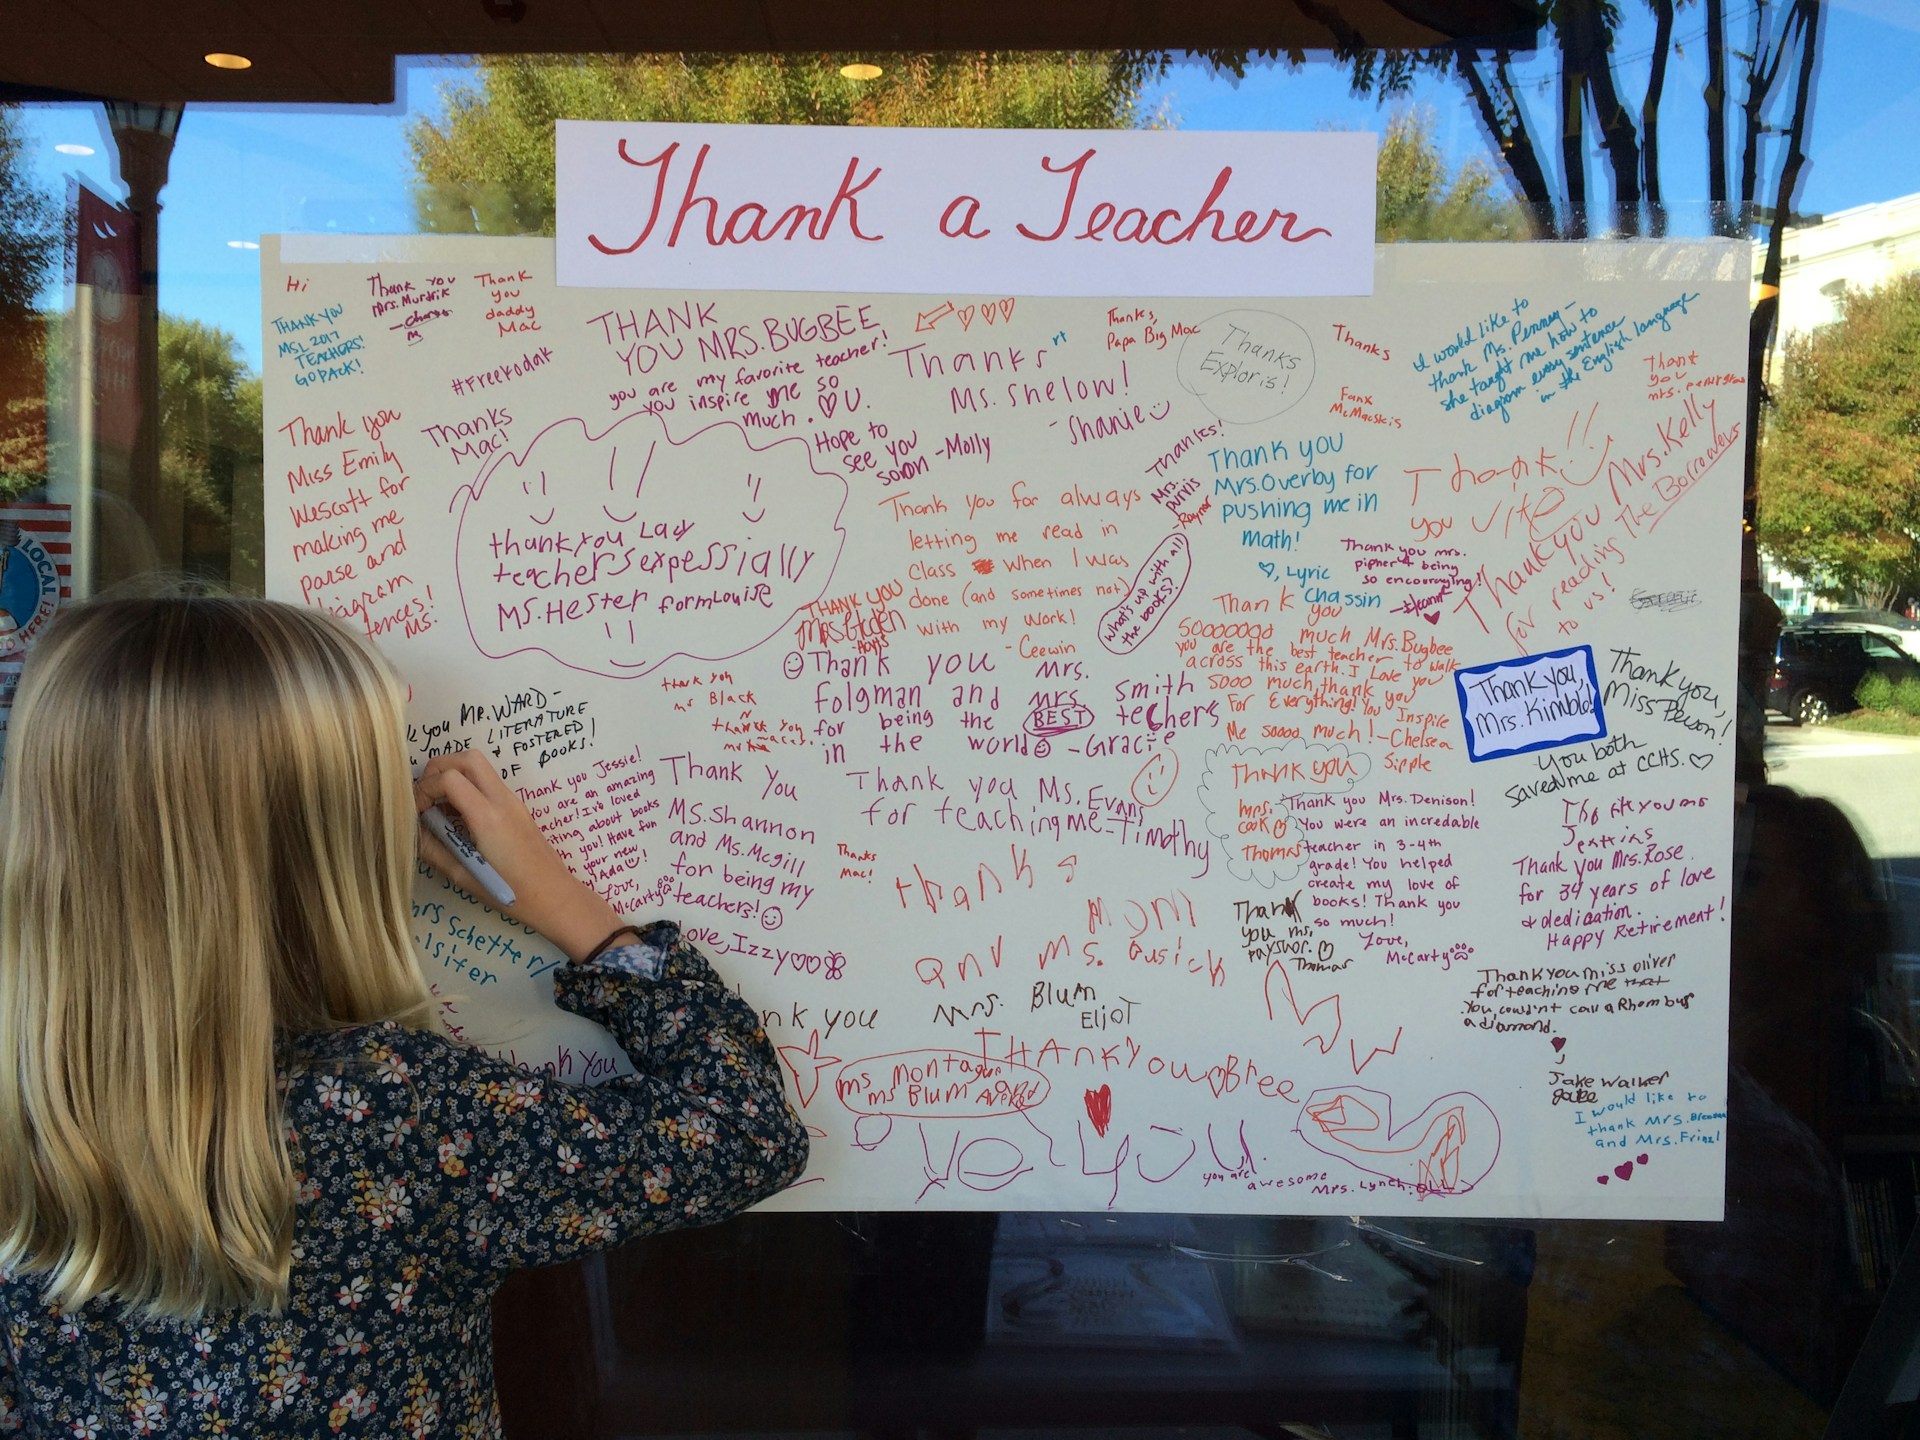 Thank a Teacher
Hi
THANK YOU
MSL 2017
TEACHERS!
GO PACK!
Thank you
Mrs. Murdrik
Thank
you
daddy
Mac
#Freekodak
THANK
YOU MRS. BUGBEE
you are my favorite teacher!
You inspire me so
much. ♡ U.
Hope to
see you
soon -Molly
Thanks
Ms. Shelow!
-Shanie
Thanks,
Papa Big Mac
Thanks
Exploris!
Thanks
Fanx
McMacskis
I would like to
thank Ms. Penney-
she taught me how to
diagram every sentence
in the English language
Thank
you
mrs.
Thank you
Miss Emily
Wescott for
making me
parse and
diagram
tences!
Ms.
Thanks
Mac!
thank you Lady
teachers expessially
Ms. Hester form Louise
Thank you for always
letting me read in
class when I was
done (and sometimes not)
with my work!
- Ceewin
Thanks!
Mrs.
purvis
-Raynor
what's up with all
the books?
Thank you
Mrs. Overby for
pushing me in
math!
♡, Lyric
Chassin
Thank!!
you
Thank you Mrs. Kelly
for reading The Borrowers
to us!
Thank you mrs.
pipher 4 being
so encouraging!
THANK YOU
Thank you
Sooooood much Mrs. Bugbee
you are the best teacher to walk
across this earth. I Love you
sooo much, thank you
For Everything! You Inspire
Me soooo much! -Chelsea
Sipple
Thank you mrs.
folgman and mrs smith
for being the BEST teachers
in the world -Gracie
Thank you,
Mrs. Kimble!
Thank you,
Miss Pevon!
You both
saved me at CCHS. ♡
thank you
mr Black
thank you
k you MR. WARD-
MADE LITERATURE
& FOSTERED
OF BOOKS!
Thank you Jessie!
You are an amazing
acher! I've loved
iting about books
th you! Have fun
h your new
y Ada!
Love,
McCarty
Thank You
Ms. Shannon
and Ms. Mcgill
for being my
teachers!
Love, Izzy ♡♡
Thank you Ms. Evans
for teaching me -Timothy
Thanks
Mac!
Thank you
mrs.
cook
Thomas
Thank you Mrs. Denison!
You were an incredable
teacher in 3-4th
grade! You helped
create my love of
books! Thank you
so much!
Love,
McCarty
Jenkins
Thank you Mrs. Rose
for 34 years of love
& dedication.
Happy Retirement!
thanks
mom
and ms. Gusick
Thank
you ms.
payswor. ♡
Thomas
Mrs Schetter/
lsifer
nk you Mrs. Blum
Eliot
Thank you miss oliver
for teaching me that
You couldn't call a Rhombus
a diamond.
Jake Walker
Jake
hank you
ms montague
ms Blum
THANK YOU ♡ Bree
YOU
you are awesome
Mrs. Lynch
I would like to
thank Mrs.
and Mrs. Frinzl
LOCAL
HERE!